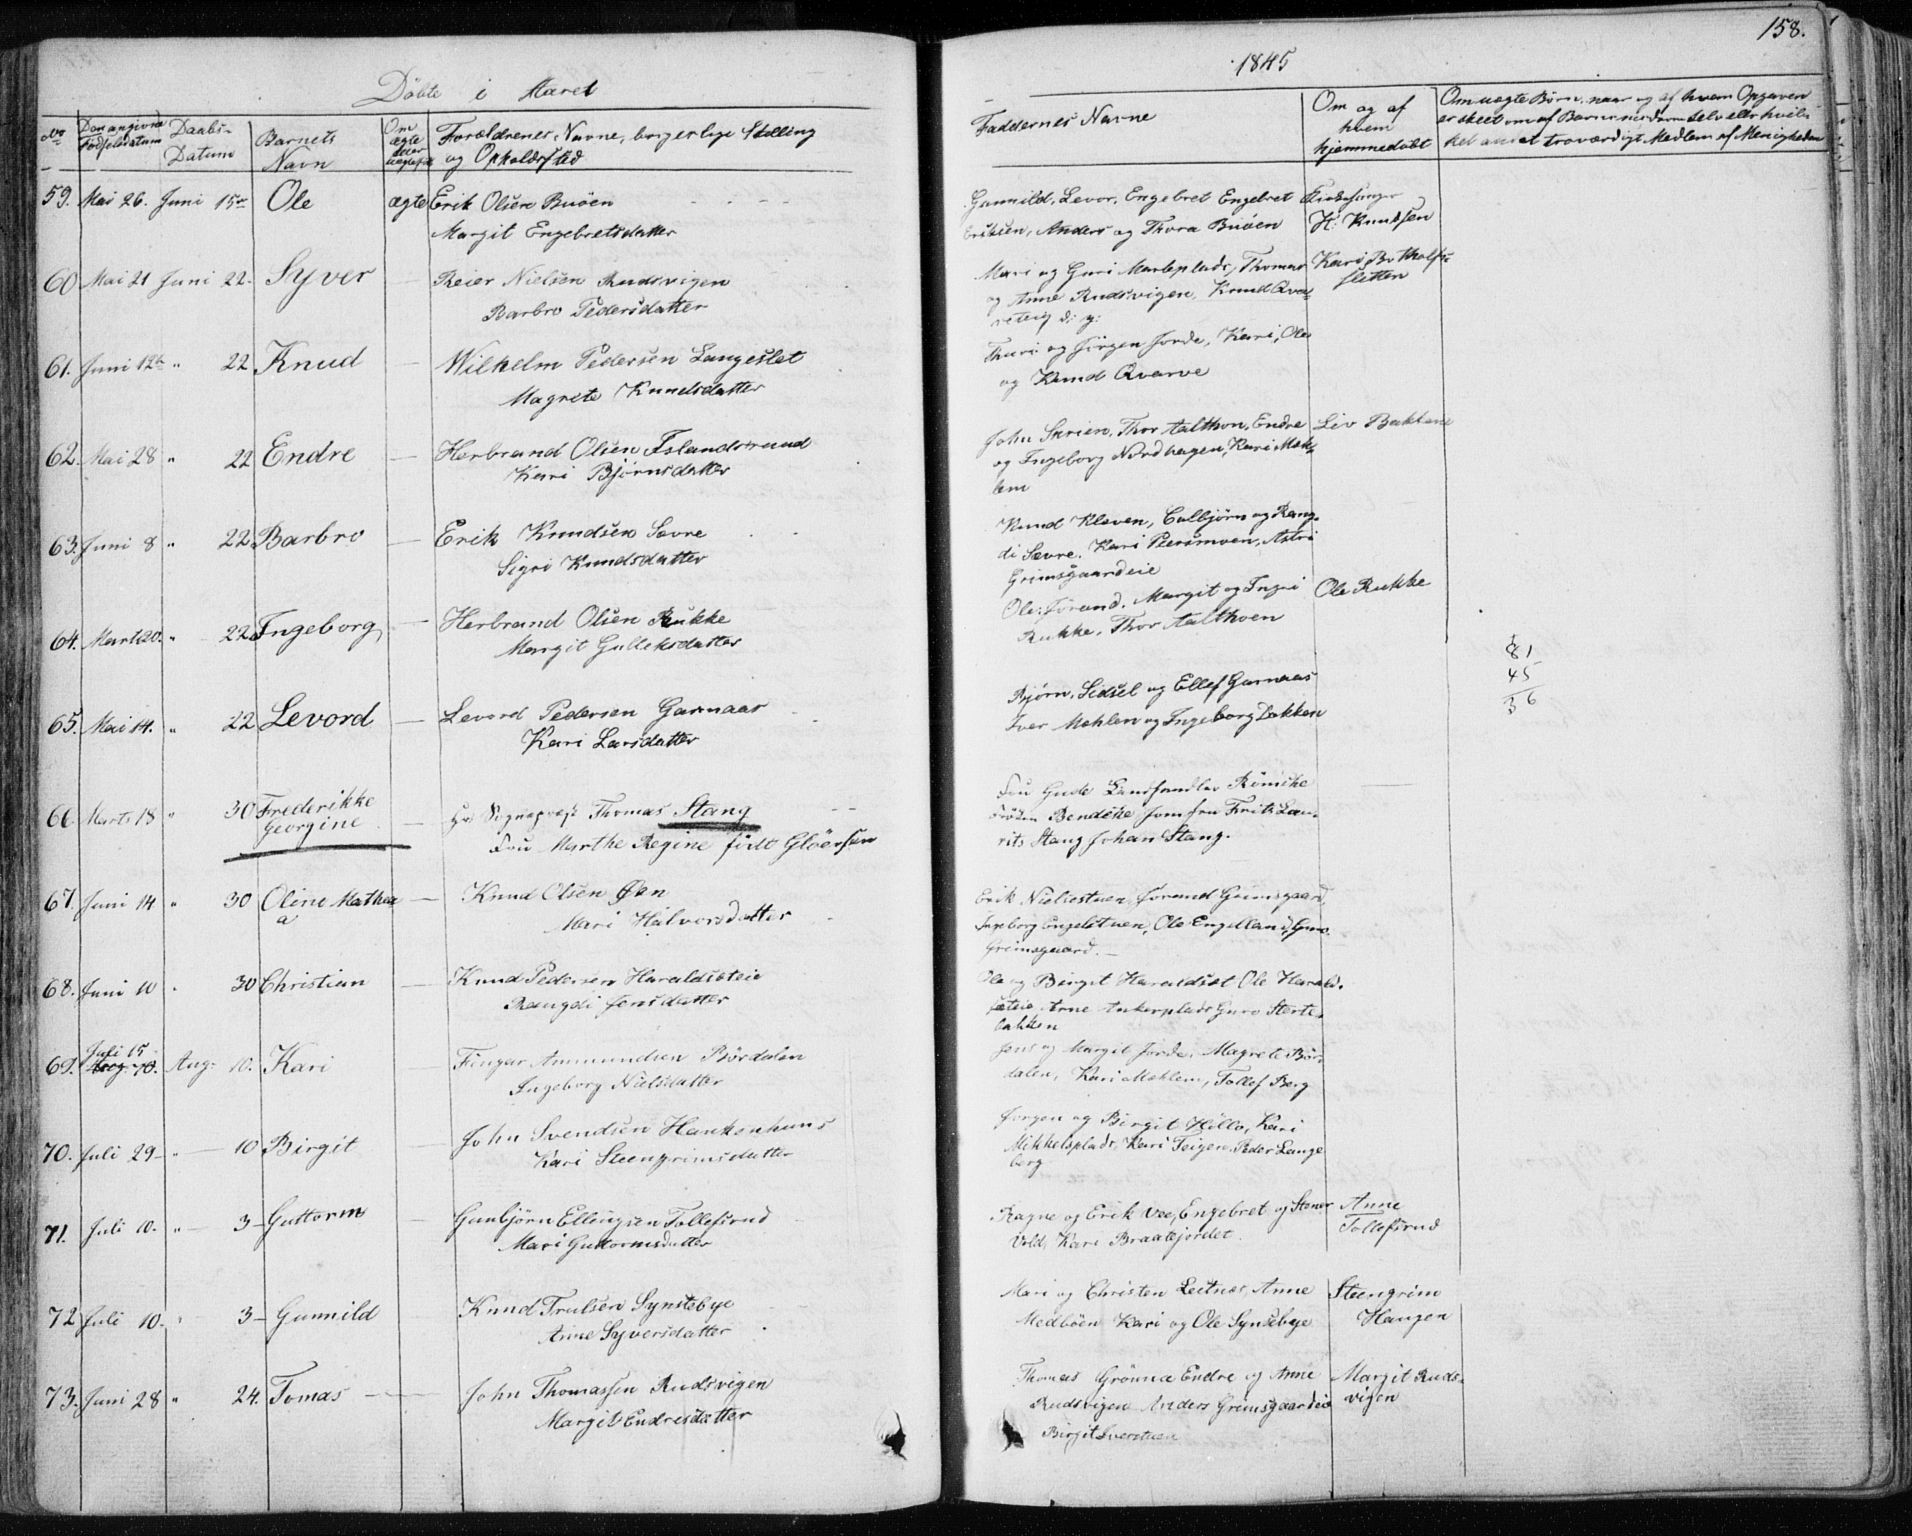 158.
Döbte i Aaret
1845
No
Den angivne Födselsdatum
Daabs-Datum
Barnets Navn
Om ægte eller uægte
Forældrenes Navne, borgerlige Stilling
og Opholdssted
Faddernes Navne
Om og af hvem hjemmedöbt
Om uægte Börn, naar og af hvem Opgaven
er skeet om af Barnemoderen selv eller hvil-
ket andet troværdigt Medlem af Menigheden
59. Mai 26. Juni 15de Ole ægte Erik Olsen Buöen
Margit Engebretsdatter
Gunnild, Levor, Engebret Engebret
Eriksen, Anders og Thora Buöen
Kirkesanger
H: Knudsen
60 Mai 21 Juni 22. Syver — Reier Nielsen Rudsvigen
Barbro Pedersdatter
Mari og Guri Marteplads, Thomas
og Anne Rudsvigen, Knud Qvar-
veteig d: y:
Kari Botholfs-
sletten
61. Juni 12te " 22 Knud — Wilhelm Pedersen Langeslet
Magrete Knudsdatter
Thuri og Jörgen Jorde, Kari, Ole
og Knud Qvarve
62. Mai 28 " 22 Endre — Herbrand Olsen Islandsrund
Kari Björnsdatter
John Skrien, Thor Aalthon, Endre
og Ingeborg Nordhagen, Kari Mæh-
lem
Liv Bakkene
63. Juni 8 " 22 Barbro — Erik Knudsen Sævre
Sigri Knudsdatter
Knud Kleven, Culbjörn og Rang-
di Sævre, Kari Peersmoen, Astri
Grimsgaardeie
64. Marts 20. " 22 Ingeborg — Herbrand Olsen Rukke
Margit Gulleksdatter
Ole, Jörand, Margit og Ingri
Rukke, Thor Aalthoen
Ole Rukke
81
45
36
65. Mai 14. " 22 Levord — Levord Pedersen Garnaas
Kari Larsdatter
Björn, Sidsel og Ellef Garnaas
Iver Mæhlen og Ingeborg Bakken
66 Marts 18 " 30 Frederikke
Georgine — Hr Sognepræst Thomas Stang
Fru Marthe Regine födt Glöersen
Fru Gude Landhandler Römcke
Fröken Bendeke Jomfru Fritz Lau-
rits Stang Johan Stang.
67. Juni 14 " 30 Oline Mathea
a — Knud Olsen Öen
Mari Halvorsdatter
Erik Nielsestuen, Jörand Grimsgaard,
Ingeborg Engelstuen, Ole Engelland, Guro
Grimsgaard.
68. Juni 10 " 30 Christian — Knud Pedersen Haraldseteie
Rangdi Jonsdatter
Ole og Birgit Haraldset Ole Harald-
seteie Arne Ankerplads Guro Sterte-
bakken
69. Juli 15 Aug. 10. Aug. 10. Kari — Fingar Ammundsen Bördalen
Ingeborg Nielsdatter
Jens og Margit Jorde, Magrete Bör-
dalen, Kari Mæhlem, Tollef Berg
70. Juli 29 — " — 10 Birgit — John Svendsen Haukenhuus
Kari Steengrimsdatter
Jorgen og Birgit Hillo, Kari
Mikkelsplads, Kari Teigen, Peder Lange
berg
71. Juli 10. " — 3 — Guttorm — Gunbjörn Ellingsen Tollefsrud
Mari Guttormsdatter
Ragne og Erik Vee, Engebret og Stener
Vold, Kari Braatejordet.
Anne
Tollefsrud
72 Juli 10. " 3 — Gunnild — Knud Trulsen Synstebye
Anne Syversdatter
Mari og Christen Leitnes, Anne
Medböen Kari og Ole Synstebye
Steengrim
Haugen
73. Juni 28 " 24. Tomas — John Thomassen Rudsvigen
Margit Endresdatter
Thomas Grönna Endre og Anne
Rudsvigen Anders Grimsgaardeie
Birgit Sverstuen
Margit Ruds-
vigen